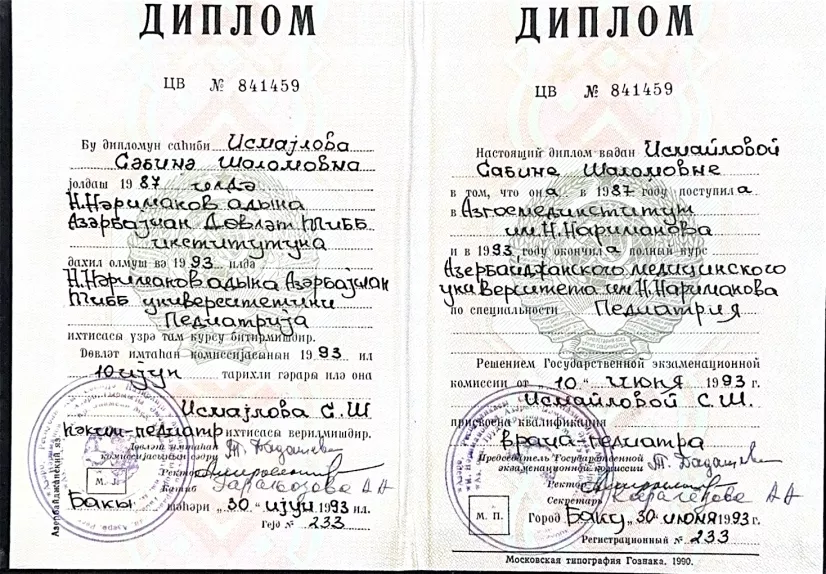 ДИПЛОМ
ЦВ № 841459
Бу дипломун саһиби Исмајлова
Сәбинә Шаломовна
јолдаш 1987 чи илдә
Н.Нәриманов адына
Азәрбајҹан Дөвләт Тибб
институтуна
дахил олмуш вә 1993 илдә
Н.Нәриманов адына Азәрбајҹан
Тибб университетини
Педиатрија
ихтисасы үзрә там курсу битирмишдир.
Дөвләт имтаһан комиссијасынын 1993 ил
10 ијун тарихли гәрары илә она
Исмајлова С.Ш.
һәким-педиатр ихтисасы верилмишдир.
Дөвләт имтаһан
комиссијасынын сәдри
Ректор
Катиб
М. Ј.
Бакы шәһәри „30“ ијун 1993 ил.
Гејд № 233
Азербайджанский яз.
ДИПЛОМ
ЦВ № 841459
Настоящий диплом выдан Исмайловой
Сабине Шаломовне
в том, что она в 1987 году поступила
в Азгосмединститут
им.Н.Нариманова
и в 1993 году окончила полный курс
Азербайджанского медицинского
университета им.Н.Нариманова
по специальности Педиатрия
Решением Государственной экзаменационной
комиссии от „10“ июня 1993 г.
Исмайловой С.Ш.
присвоена квалификация
врача-педиатра
Председатель Государственной
экзаменационной комиссии
Ректор
Секретарь
М. П.
Город Баку „30“ июня 1993 г.
Регистрационный № 233
Московская типография Гознака. 1990.